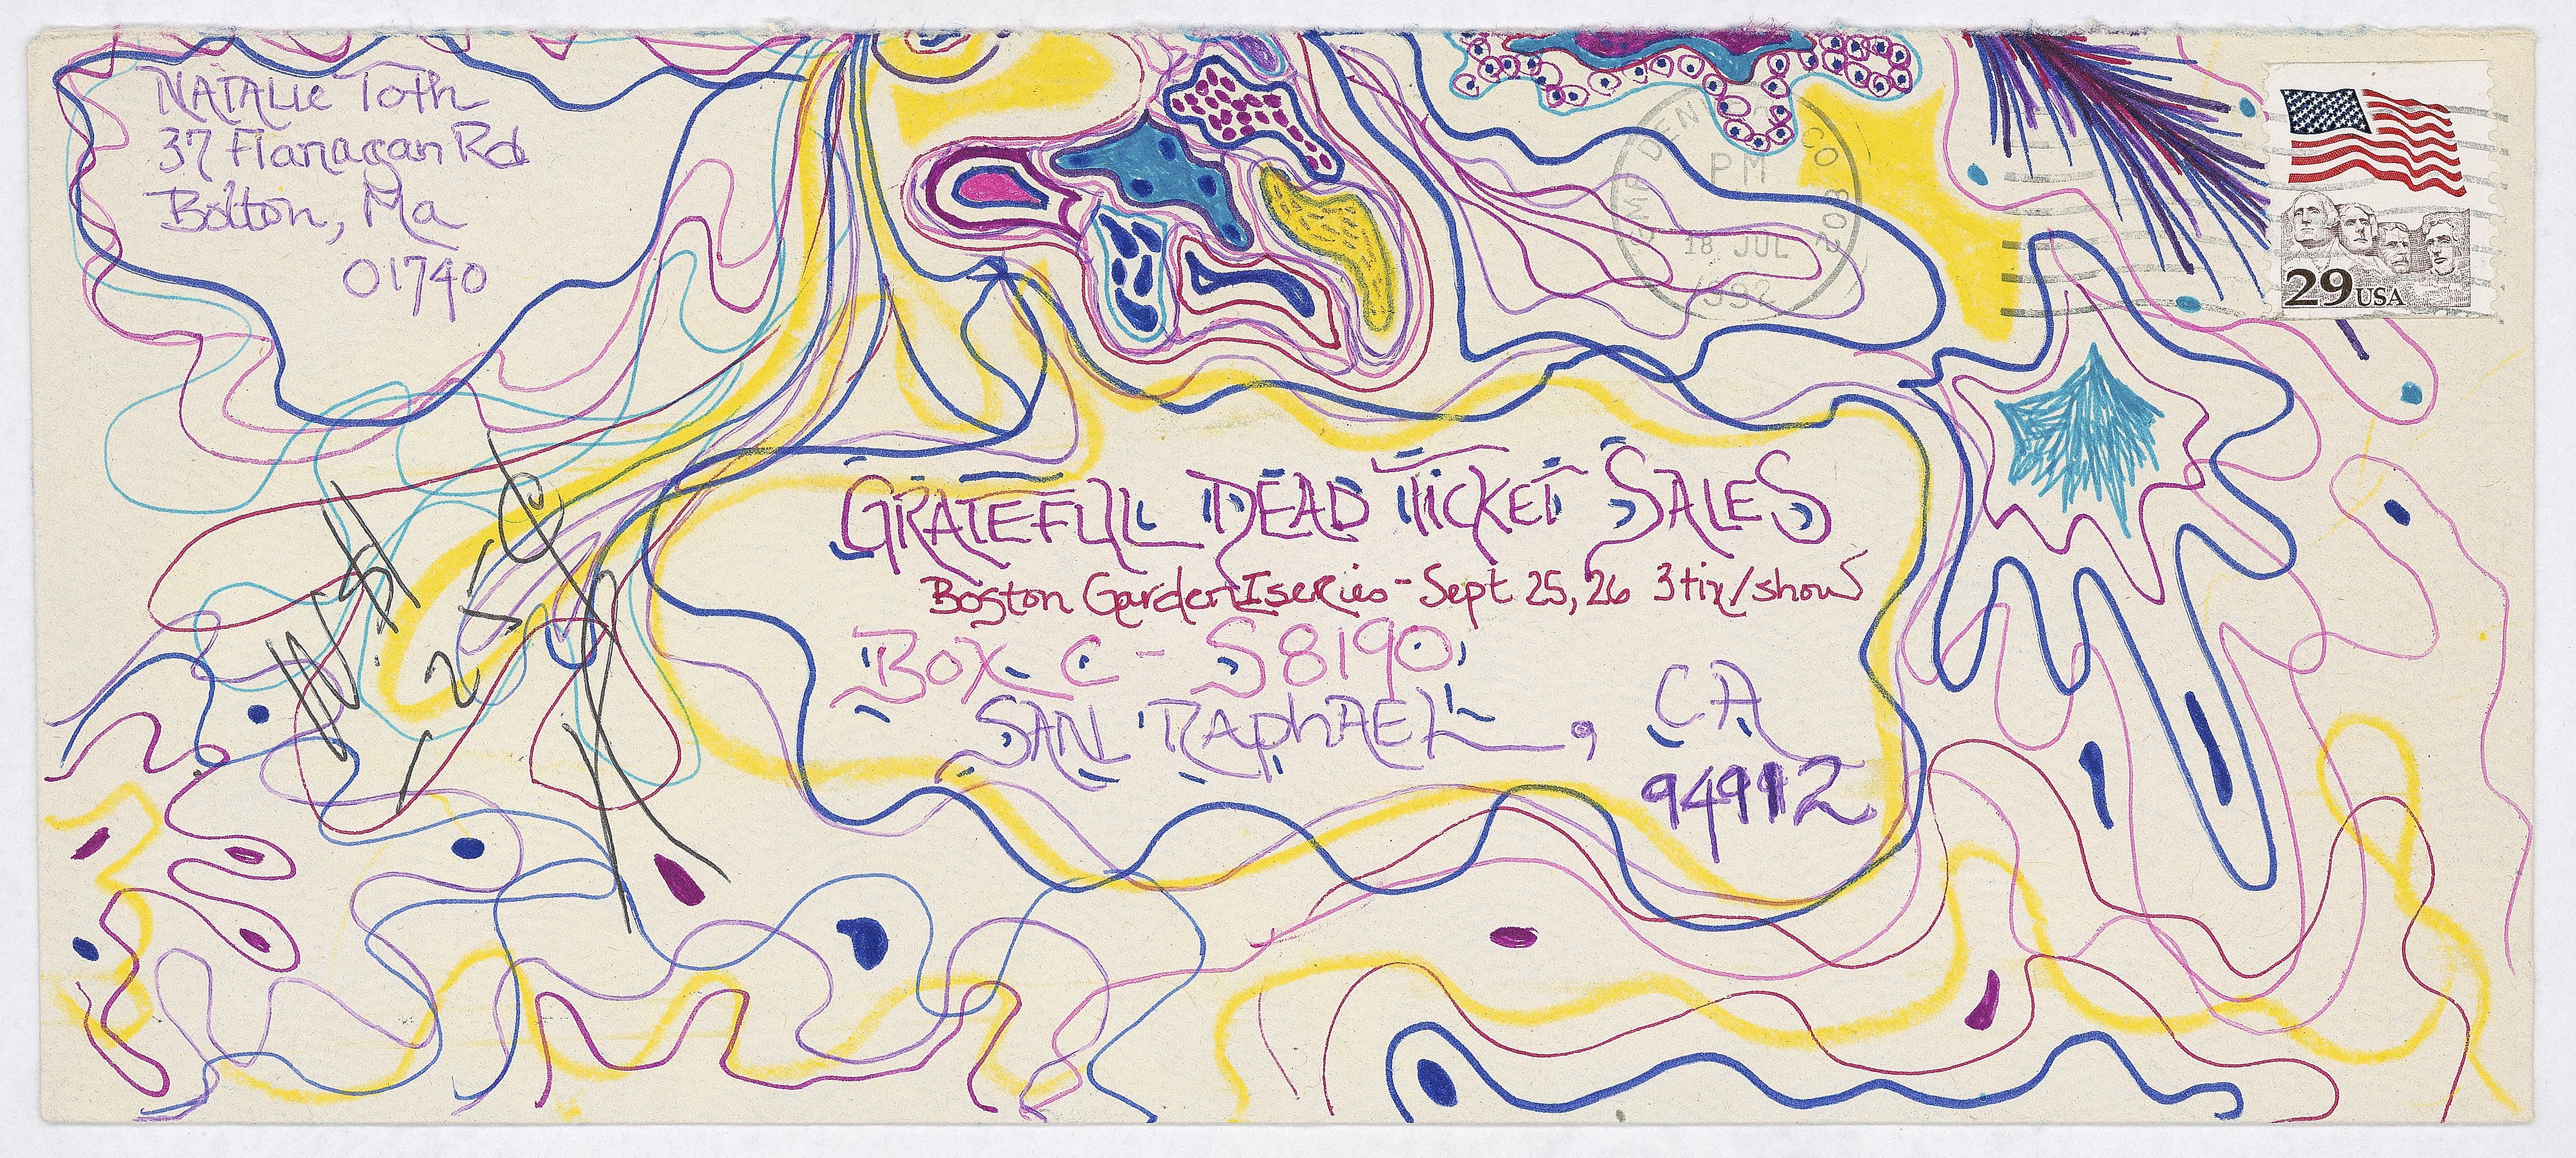 NATALIE Toth
37 Flanagan Rd
Bolton, Ma
01740
DENVER CO 802
PM
18 JUL
1992
29 USA
GRATEFUL DEAD TICKET SALES
Boston Garden I series - Sept 25, 26 3 tix/show
BOX C - S 8190
SAN RAPHAEL, CA
94912